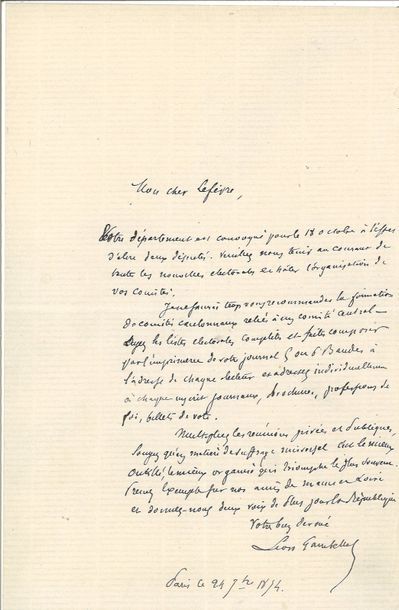 Mon cher Lefèvre,
Votre département est convoqué pour le 18 octobre à l'effet
d'élire deux députés. Veuillez nous tenir au courant de
toute les nouvelles électorales et hâter l'organisation de
vos comités.
Je ne saurais trop vous recommander la formation
de comités cantonaux reliés à un comité central —
Ayez les listes électorales complètes et faites composer
par l'imprimerie de votre journal 5 ou 6 Bandes à
l'adresse de chaque électeur et adressez individuellement
à chaque inscrit journaux, brochures, professions de
foi, billets de vote.
Multipliez les réunions privées et publiques,
songez qu'en matière de suffrage universel c'est le mieux
outillé, le mieux organisé qui triomphe le plus souvent.
Prenez exemple sur nos amis de Maine et Loire
et donnez-nous deux voix de plus pour la République
Votre bien dévoué
Léon Gambetta
Paris le 24 7bre 1874.